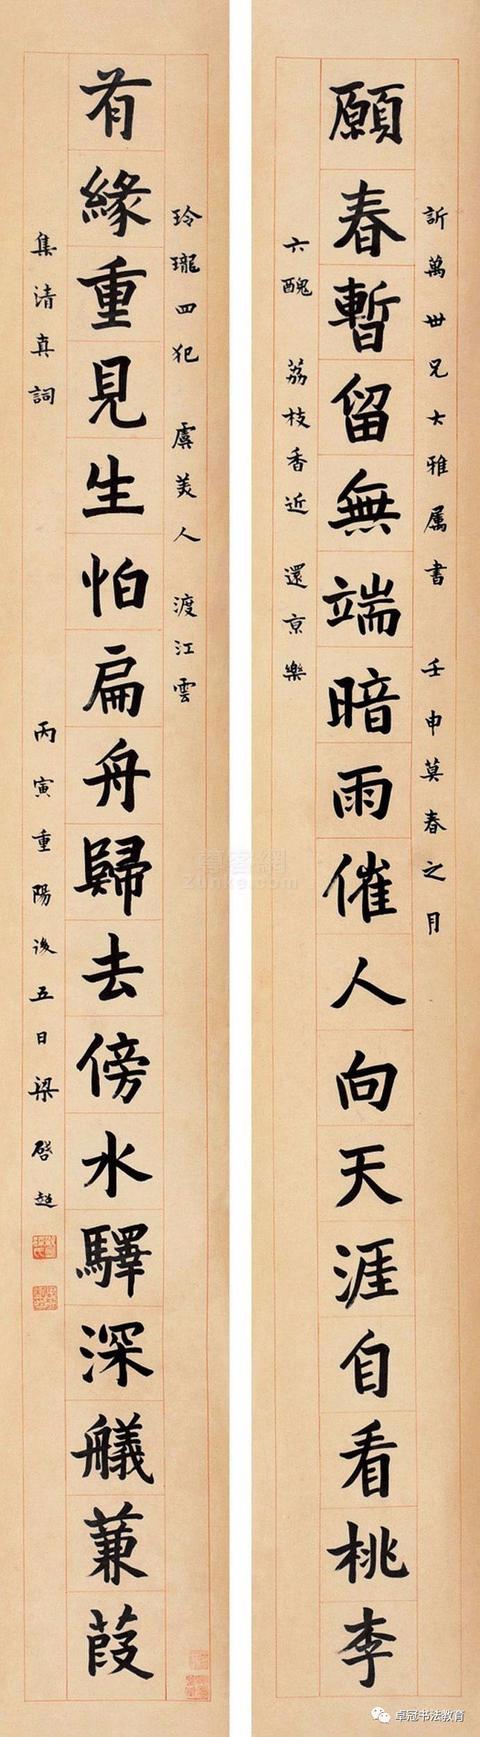 訢萬世兄大雅属書 壬申莫春之月
願春暫留無端暗雨催人向天涯自看桃李
六醜 荔枝香近 還京樂
玲瓏四犯 虞美人 渡江雲
有緣重見生怕扁舟歸去傍水驛深艤蒹葭
集清真詞 丙寅重陽後五日梁啓超
尊客網
zunke.com
卓冠书法教育